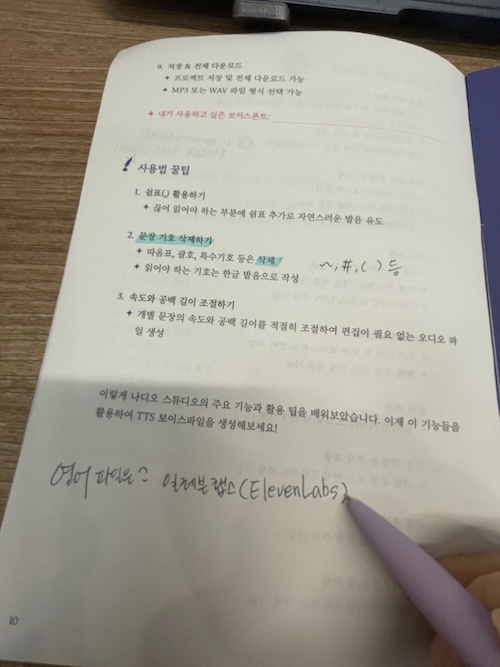 9. 저장 & 전체 다운로드
✦ 프로젝트 저장 및 전체 다운로드 가능
✦ MP3 또는 WAV 파일 형식 선택 가능
✦ 내가 사용하고 싶은 보이스폰트:
사용법 꿀팁
1. 쉼표(,) 활용하기
✦ 끊어 읽어야 하는 부분에 쉼표 추가로 자연스러운 발음 유도
2. 문장 기호 삭제하기
✦ 따옴표, 괄호, 특수기호 등은 삭제 ~, #, ( ) 등
✦ 읽어야 하는 기호는 한글 발음으로 작성
3. 속도와 공백 길이 조절하기
✦ 개별 문장의 속도와 공백 길이를 적절히 조절하여 편집이 필요 없는 오디오 파
일 생성
이렇게 나디오 스튜디오의 주요 기능과 활용 팁을 배워보았습니다. 이제 이 기능들을
활용하여 TTS 보이스파일을 생성해보세요!
영어 파일은? 일레븐랩스(ElevenLabs)
10